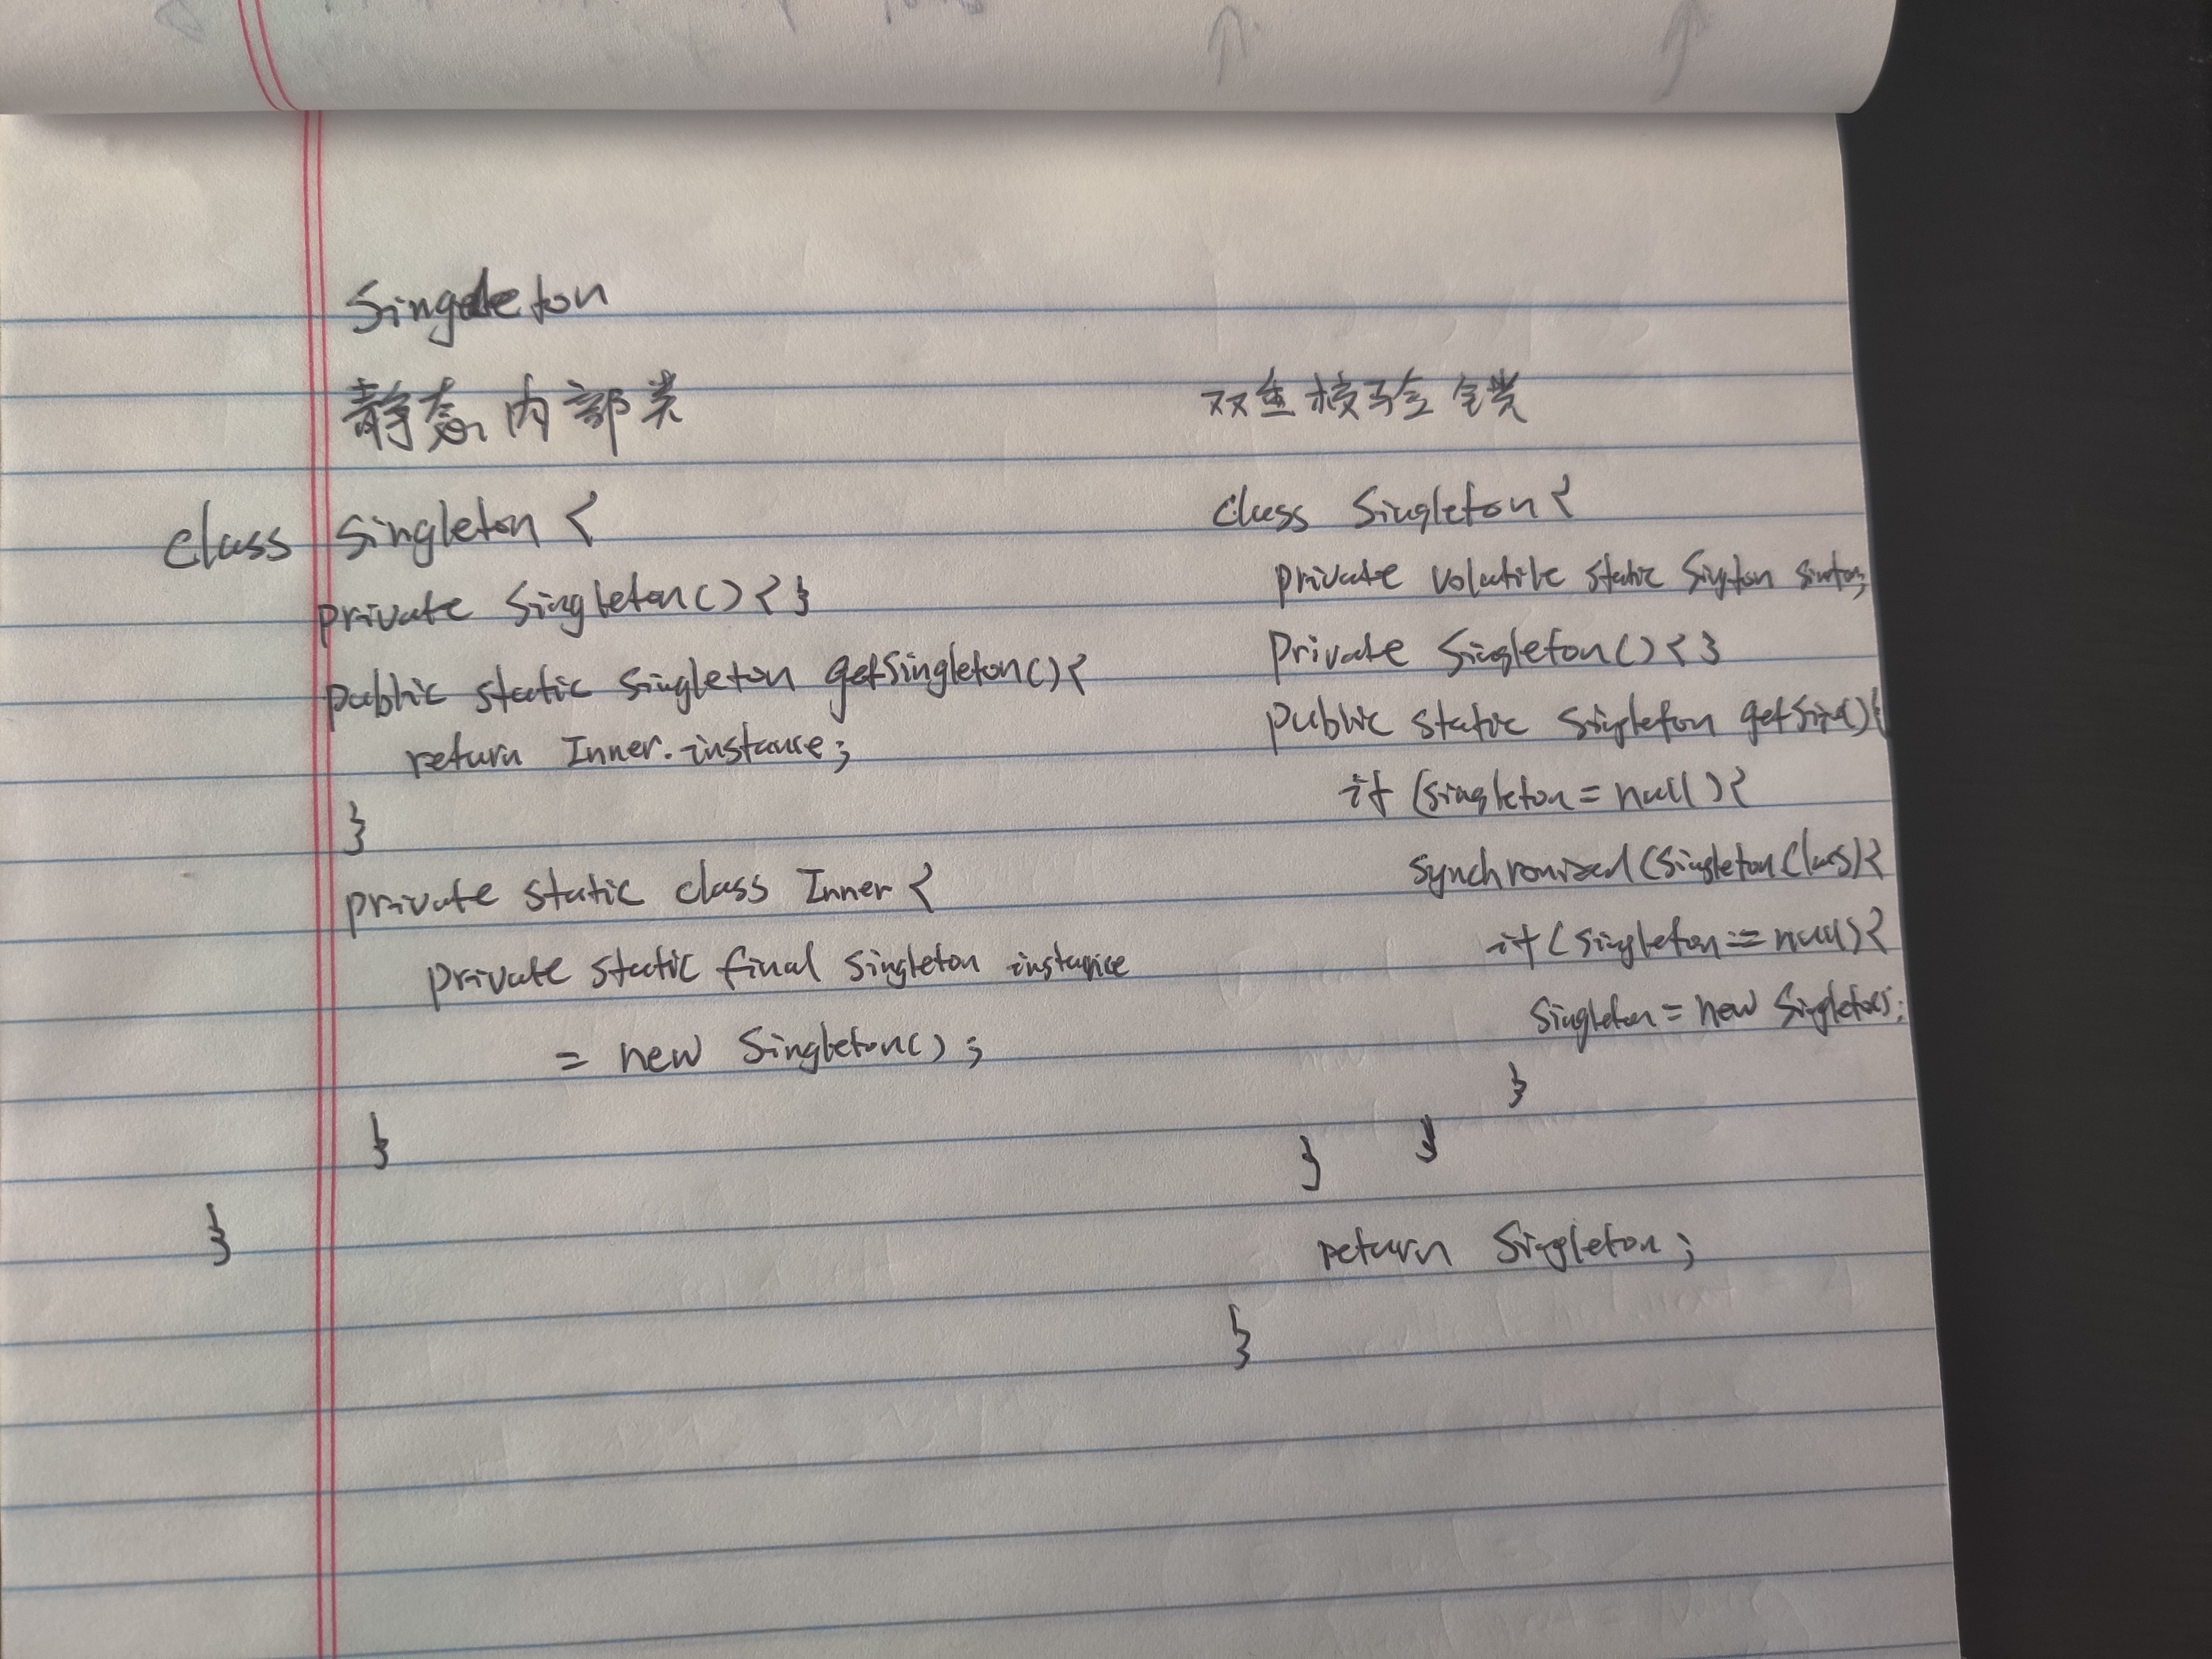 Singleton
静态内部类
class Singleton {
private Singleton() { }
public static Singleton getSingleton() {
return Inner.instance;
}
private static class Inner {
private static final Singleton instance
= new Singleton();
}
}
双重校验锁
class Singleton {
private volatile static
private Singleton() { }
public static Singleton
if (singleton = null) {
synchronized (Singleton Class) {
if (singleton == null) {
Singleton = new Singleton();
}
}
}
return Singleton;
}